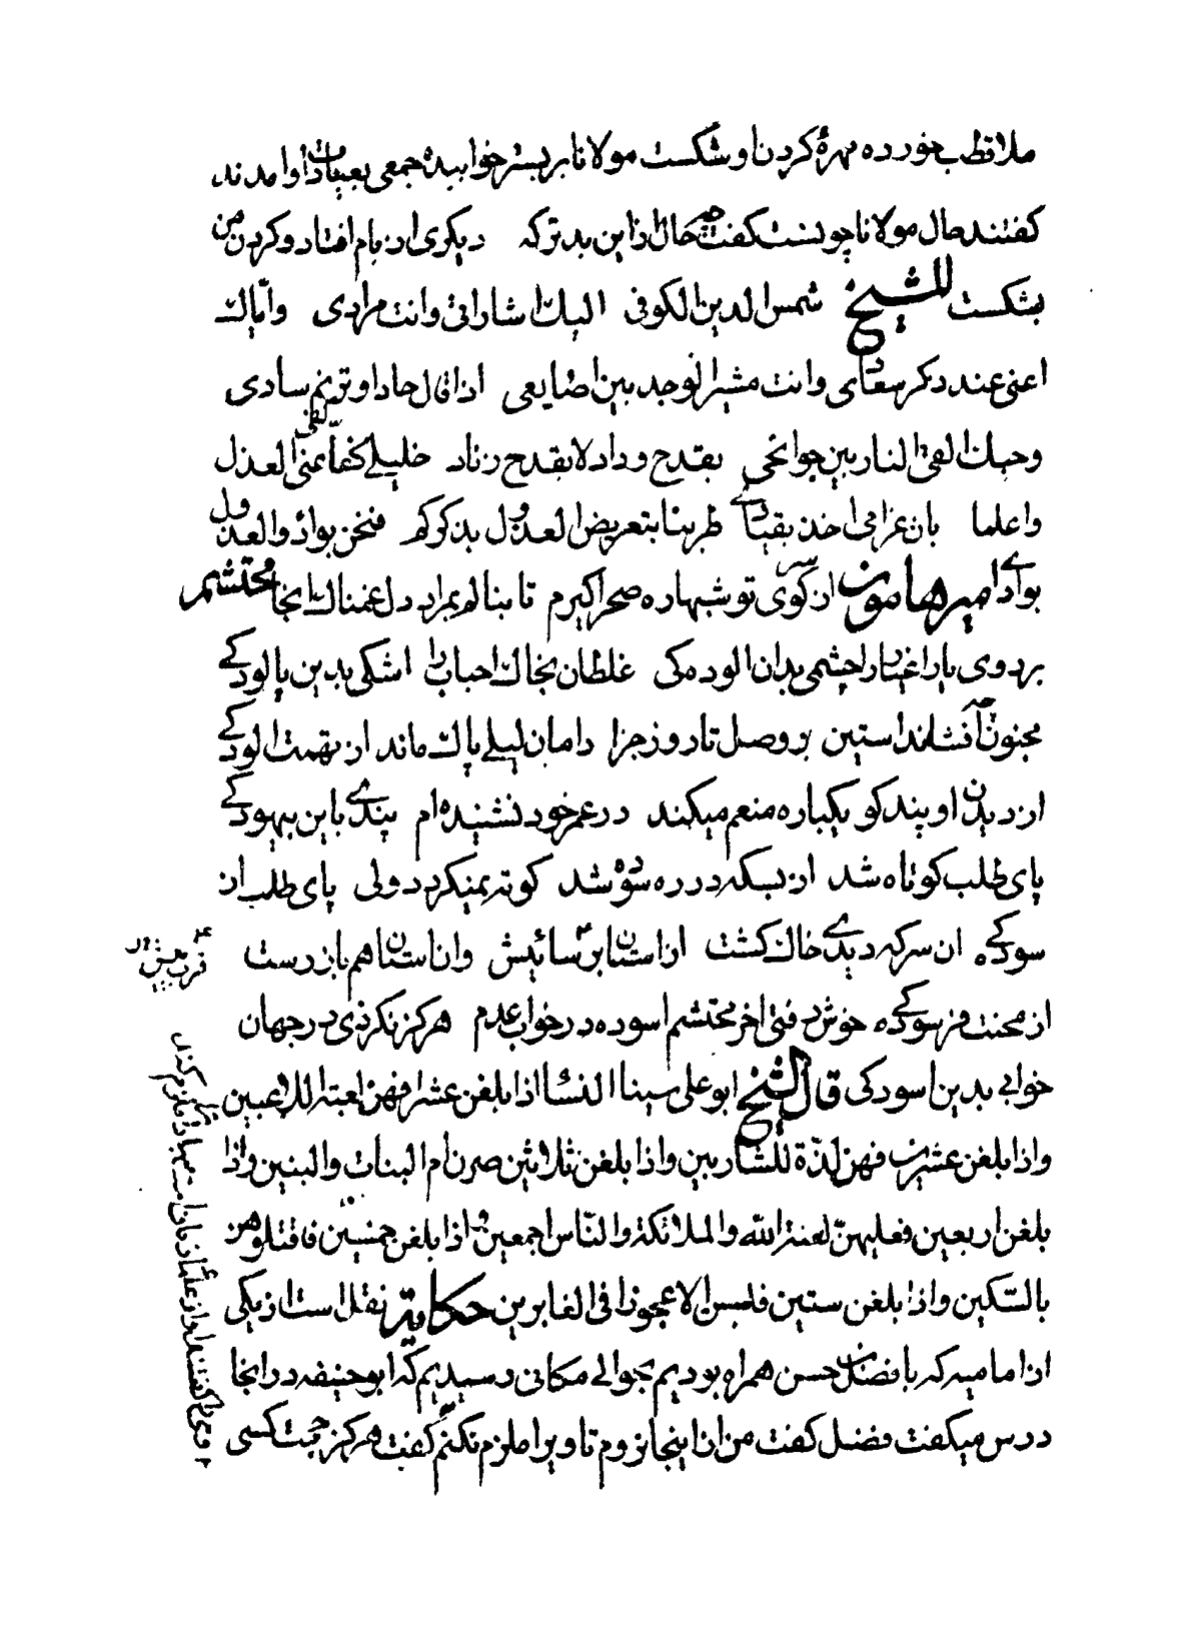 ملا قطب خورده مهرهٔ کردن او شکست مولانا بر بستر خوابیده جمعی بعیادت او امدند
کفتند حال مولانا چونست کفت چه حال از این بدتر که دیکری از بام افتاد و کردن من
بشکست للشیخ شمس الدین الکوفی الیک اشاراتی وانت مرادی وایاک
اعنی عند ذکر سعاد وانت مشیر الوجد بین اضالعی اذا قال حاد او ترنم سادی
وحبک القی النار بین جوانحی بقدح وداد لا بقدح زناد خلیلی کفا عنی العذل
واعلما بان غرامی اخذ بقیادی طربنا بتعریض العذول بذکرکم فنحن بواد والعذول
بوادی امیر همایون از کوی تو شبها ره صحرا کیرم تا بنالم بمراد دل غمناک انجا محتشم
بر روی یار اغیار را چشمی بدان الوده کی غلطان بخاک احباب را اشکی بدین پالودکی
مجنون چه افشاند استین بر وصل تا روز جزا دامان لیلی پاک ماند از تهمت الودکی
از دیدن او پند کو یکباره منعم میکند در عمر خود نشنیده ام پندی باین بیهودکی
پای طلب کوتاه شد از بسکه در ره سوده شد کوته نمیکردد ولی پای طلب از
سودکی ان سر که دیدی خاک کشت از استان بر سائیش وان استان هم باز رست
از محنت فرسودکی خوش رفتی اخر محتشم اسوده در خواب عدم هرکز نکردی در جهان
خوابی بدین اسودکی قال الشیخ ابو علی سینا النسا اذا بلغن عشرا فهن لعبة للاعبین
واذا بلغن عشرین فهن لذة للشاربین واذا بلغن ثلاثین صرن ام البنات والبنین واذا
بلغن اربعین فعلیهن لعنة الله والملائکة والناس اجمعین واذا بلغن خمسین فاقتلوهن
بالسکین واذا بلغن ستین فلیس الا عجوزا فی الغابرین حکایة نقل است از یکی
از امامیه که با فضل حسن همراه بودیم بحوالی مکانی رسیدیم که ابو حنیفه در انجا
درس میکفت فضل کفت من از اینجا نروم تا ویرا ملزم نکنم کفت هرکز حجت کسی